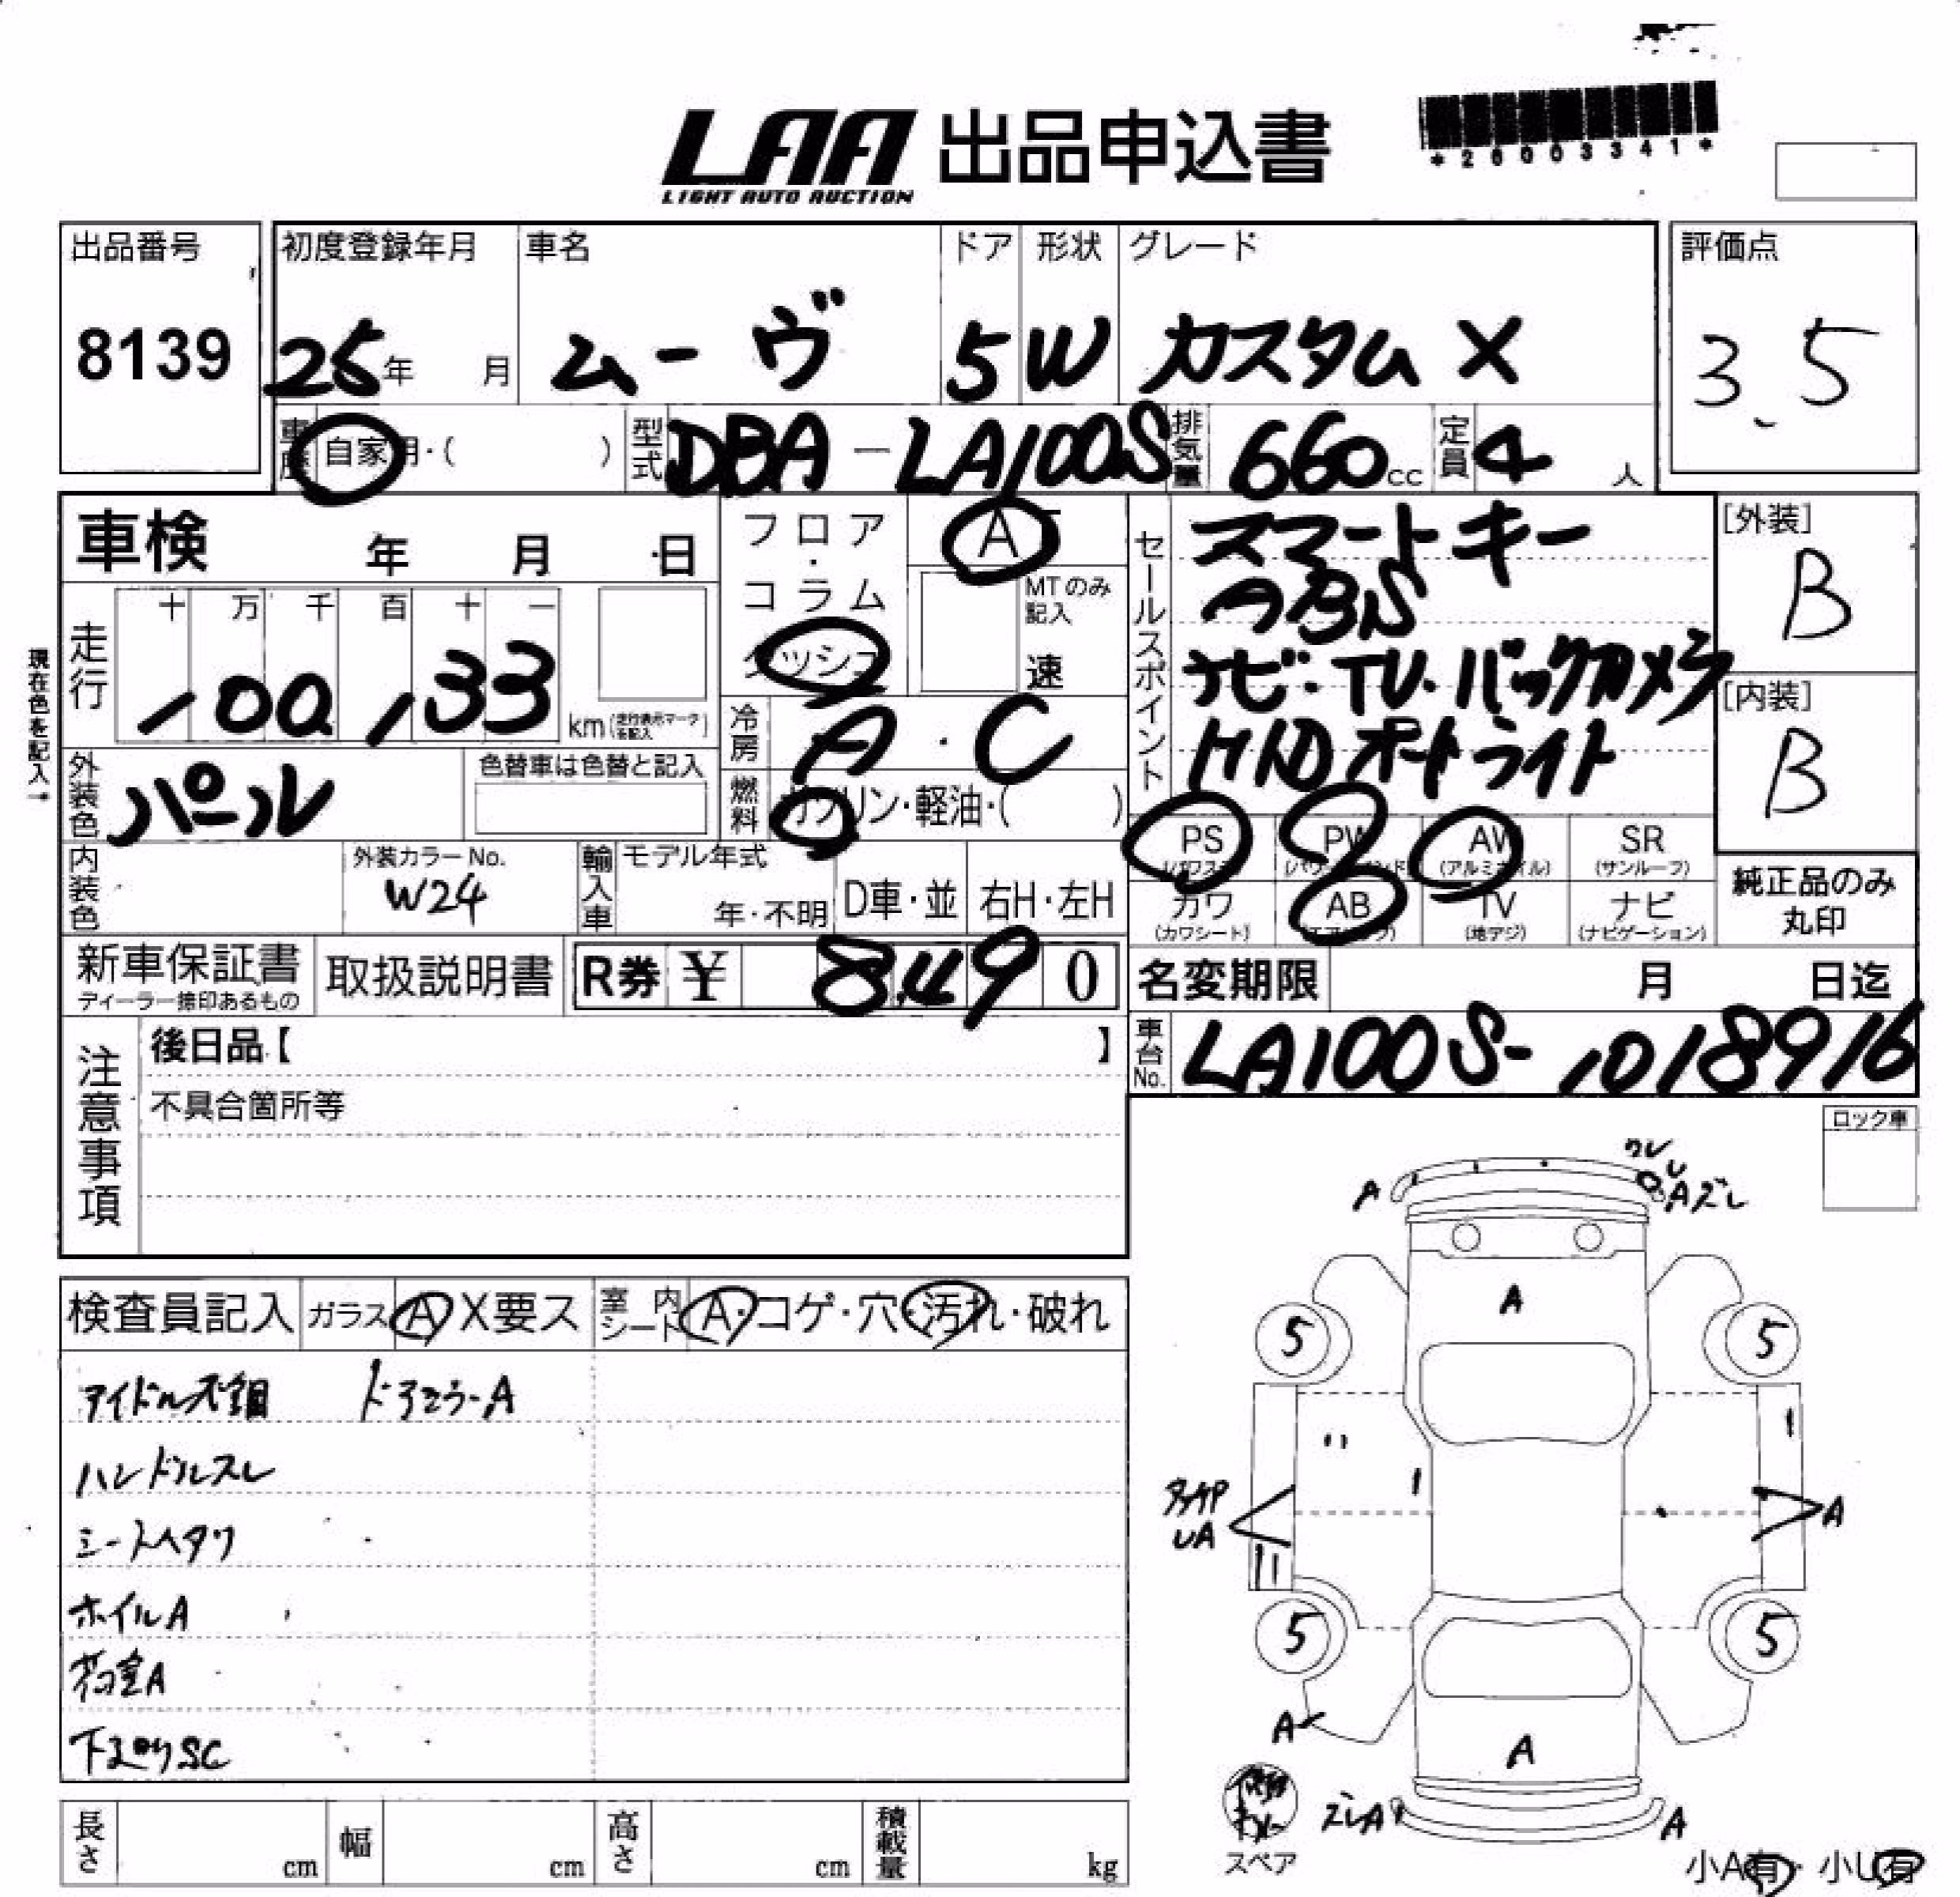 LAA 出品申込書
LIGHT AUTO AUCTION
*26003341*
出品番号 初度登録年月 車名 ドア 形状 グレード 評価点
8139 25年 月 ムーヴ 5 W カスタム X 3.5
車歴 自家用・( ) 型式 DBA-LA100S 排気量 660cc 定員 4人
車検 年 月 日
フロア・コラム ダッシュ
AT
MTのみ記入
速
セールスポイント
スマートキー
ABS
ナビ・TV・バックカメラ
HID オートライト
[外装]
B
[内装]
B
現在色を記入→
走行 十 万 千 百 十 一
100,133 km(走行表示マークを記入)
冷房 A・C
外装色 パール 色替車は色替と記入
燃料 ガソリン・軽油・( )
PS (パワステ) PW (パワーウインド) AW (アルミホイル) SR (サンルーフ)
カワ (カワシート) AB (エアバッグ) TV (地デジ) ナビ (ナビゲーション)
純正品のみ丸印
内装色 外装カラーNo. W24 輸入車 モデル年式 年・不明 D車・並 右H・左H
新車保証書 ディーラー捺印あるもの 取扱説明書 R券 ¥ 8,490
名変期限 月 日迄
車台No. LA100S-1018916
注意事項
後日品【 】
不具合箇所等
ロック車
検査員記入 ガラス A X要ス 室内シート A・コゲ・穴・汚れ・破れ
アイドル不調 ドアミラーA
ハンドルスレ
シートヘタリ
ホイルA
荷室A
下廻りSC
ワレ
U
A
Aズレ
A
5 5
UA
A
5 5
A
A
ズレA
A
スペア
小A有・小U有
長さ cm 幅 cm 高さ cm 積載量 kg